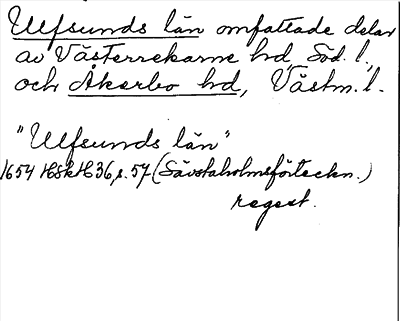 Ulfsunds län omfattade delar
av Västerrekarne hd, Söd. l.,
och Åkerbo hd, Västm. l.
"Ulfsunds län"
1654 HSH H36, s. 57 (Sävstaholmsförteckn.)
regest.